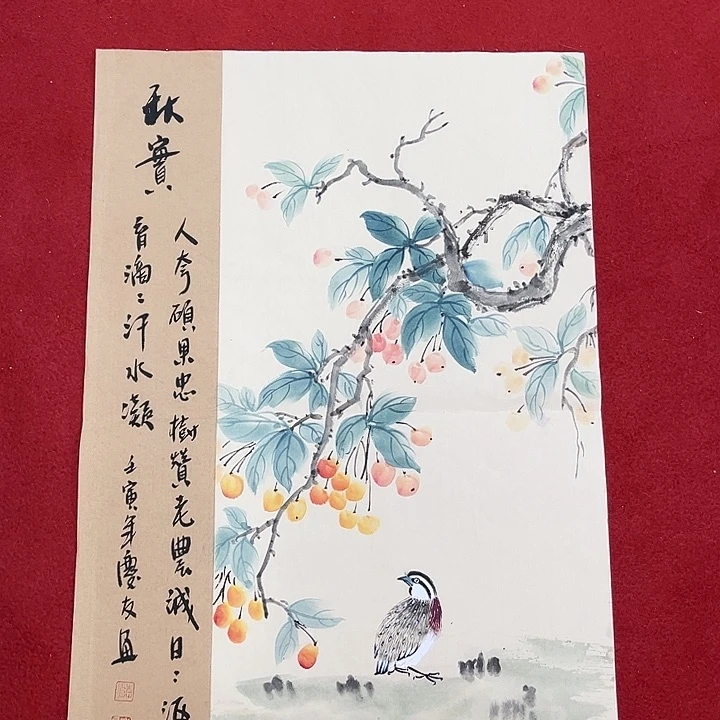 秋實
人夸碩果忠樹贊老農誠日〻
育滴〻汗水凝 壬寅年慶友画